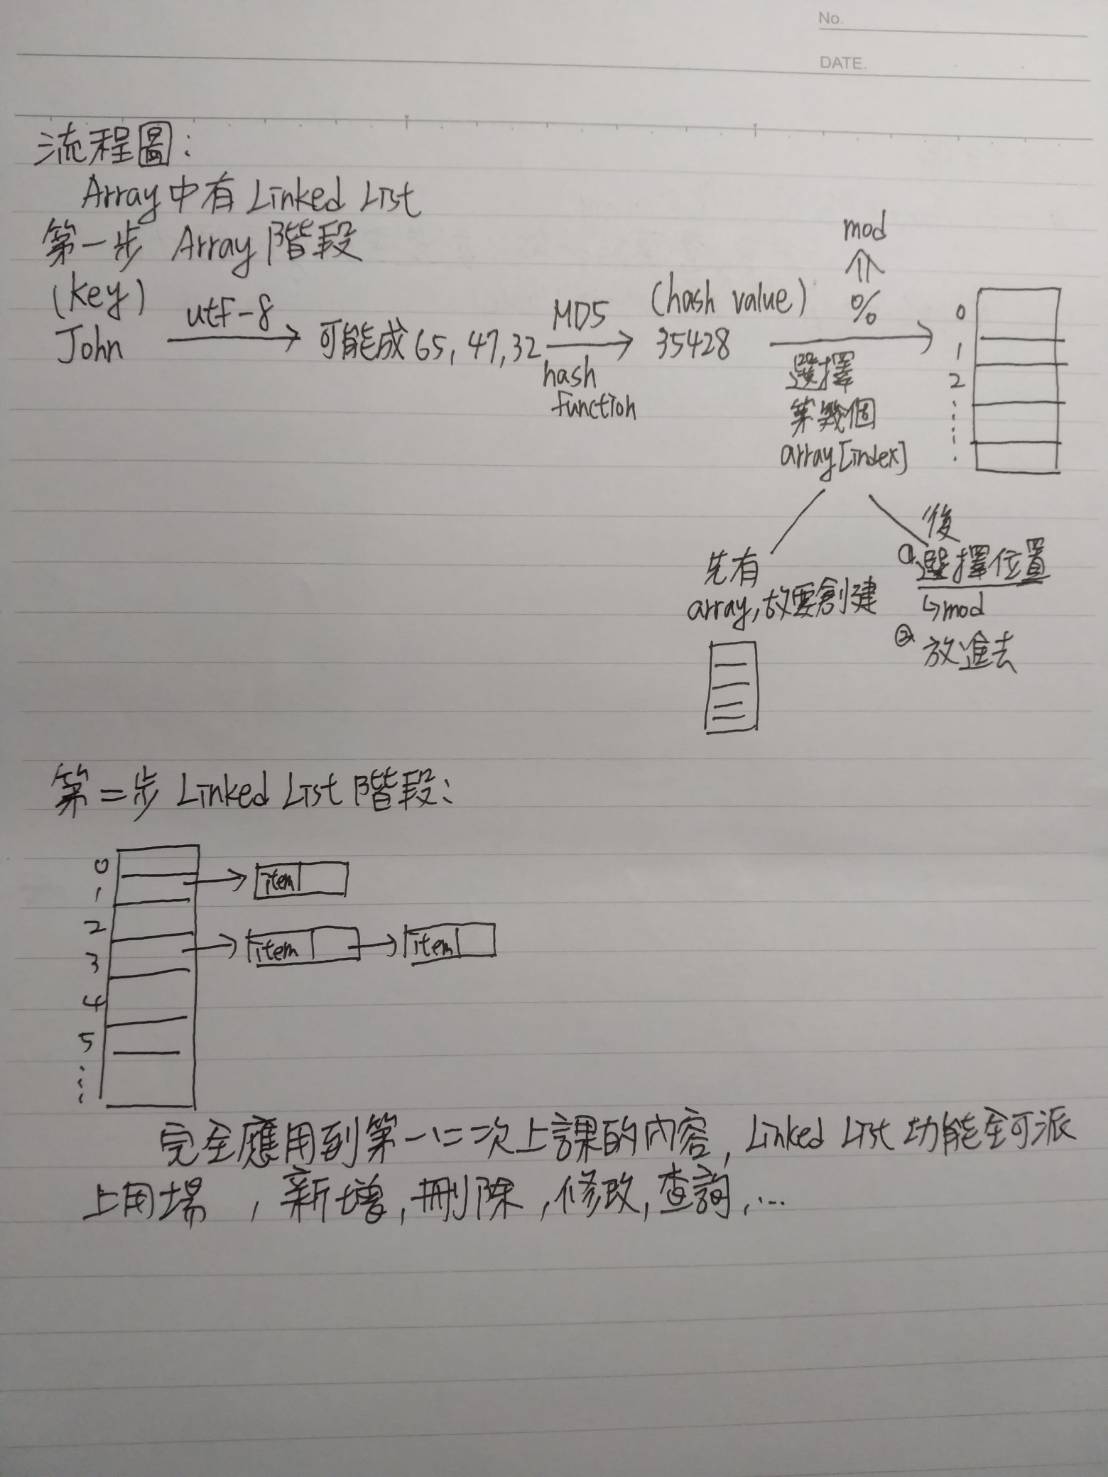 No.
DATE.
流程圖：
Array中有Linked List
第一步 Array階段
(key)
John
utf-8
可能成65, 47, 32
MD5
hash
function
(hash value)
35428
mod
%
選擇
第幾個
array[index]
0
1
2
先有
array, 故要創建
後
①選擇位置
↳mod
② 放進去
第二步 Linked List階段：
0
1
2
3
4
5
item
item
item
完全應用到第一、二次上課的內容, Linked List 功能全可派
上用場 , 新增, 刪除, 修改, 查詢, ...